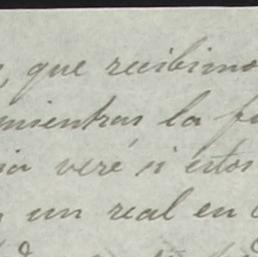 que recibimo
mientras la
veré si estos
un real en